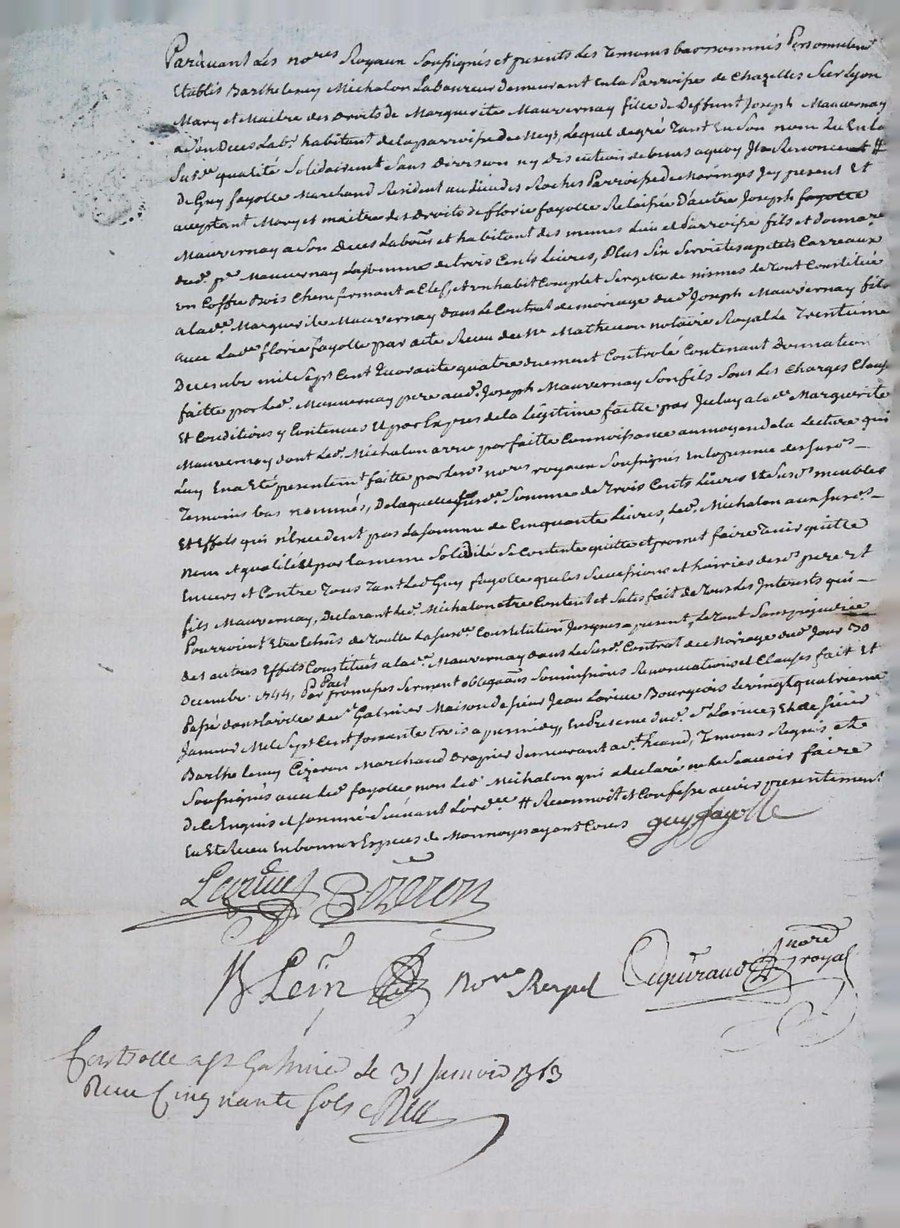 Pardevant Les no.res Royaux Soussignés et presents Les Temoins bas nommés Personnelem.t
Etablis Barthelemy Michalon Laboureur demeurant En la Parroisse de Chazelles Sur Lyon
Mary et Maitre des droits de Marguerite Mauvernay fille de Deffunt Joseph Mauvernay
a Son Deces Lab.r habitant de la parroisse de Meys, Lequel de gré Tant En Son nom Qu'En La
Sus.e qualité Solidairement Sans division ny discution de biens a quoy Il a Renoncé #
De Guy fayolle Marchand Resident au Lieu des Roches Parroisse de Maringes Icy present Et
acceptant Mary et maitre des droits de florie fayolle Relaissée D'autre Joseph fayolle
Mauvernay a Son Deces Labour et habitant des memes Lieu et Parroisse fils et donnataire
dud. p.re Mauvernay La Somme de trois Cents Livres, Plus Six Serviettes a petits Carreaux
un Coffre Bois Chene fermant a Clef, et un habit Complet Sergette de nismes Le Tout Constitué
a lad.e Marguerite Mauvernay dans Le Contrat de mariage dud. Joseph Mauvernay fils
avec Lad.e florie fayolle par acte Recu de M.e Mathevon notaire Royal Le Trentieme
Decembre mil Sept Cent Quarante quatre duement Controlé Contenant Donnation
faitte par Led. Mauvernay pere aud. Joseph Mauvernay Son fils Sous Les Charges Clauses
Et Conditions y Contenues Et par Expres de la Legitime faitte par Iceluy a lad.e Marguerite
Mauvernay dont Led. Michalon a pris parfaitte Connoissance au moyen de la Lecture qui
Luy En a Eté presentem.t faitte par Lun des no.res royaux Soussignés En la presence des Susd.s
Temoins bas nommés, De laquelle Susd.e Somme de Trois Cents Livres Et des Susd.s meubles
Et Effets qui n'Excedent pas La Somme de Cinquante Livres, Led. Michalon aux Susd.s
nom et qualité Et par la meme Solidité Se Contente quitte et promet faire Tenir quitte
Envers et Contre Tous Tant Led. Guy fayolle que les Successions et hoiries desd.s pere et
fils Mauvernay, Declarant Led. Michalon etre Content et Satisfait de Tous les Interests qui
Pourroient Etre Echus de Toutte La Susd.e Constitution Jusques a present, Le Tout Sans prejudice
des autres Effets Constitués a lad.e Mauvernay dans Le Susd. Contrat de Mariage dud. Jour 30
Decembre 1744, Par Pact promesses Serment obligations Soumissions Renonciations et Clauses fait Et
Passé dans la Ville de S.t Galmier Maison de Sieur Jean Larüe Bourgeois Le vingt quatrieme
Janvier Mil Sept Cent Soixante trois apres midy, En Presence dud. S.r Larüe, Et de Sieur
Barthelemy Cizeron Marchand Drapier demeurant aud. Temoins Requis Et
Soussignés avec Led. fayolle non Led. Michalon qui a declaré ne le Scavoir faire
De Ce Enquis et Sommé Suivant L'ord.ce # Reconnoit et Confesse avoir presentement
Eu Et Recu En bonnes Especes de Monnoye ayant Cours guy fayolle
Larüe Cizeron
no.re Royal no.re royal
Controllé a S.t Galmier Le 31 Janvier 1763
Recu Cinquante Sols